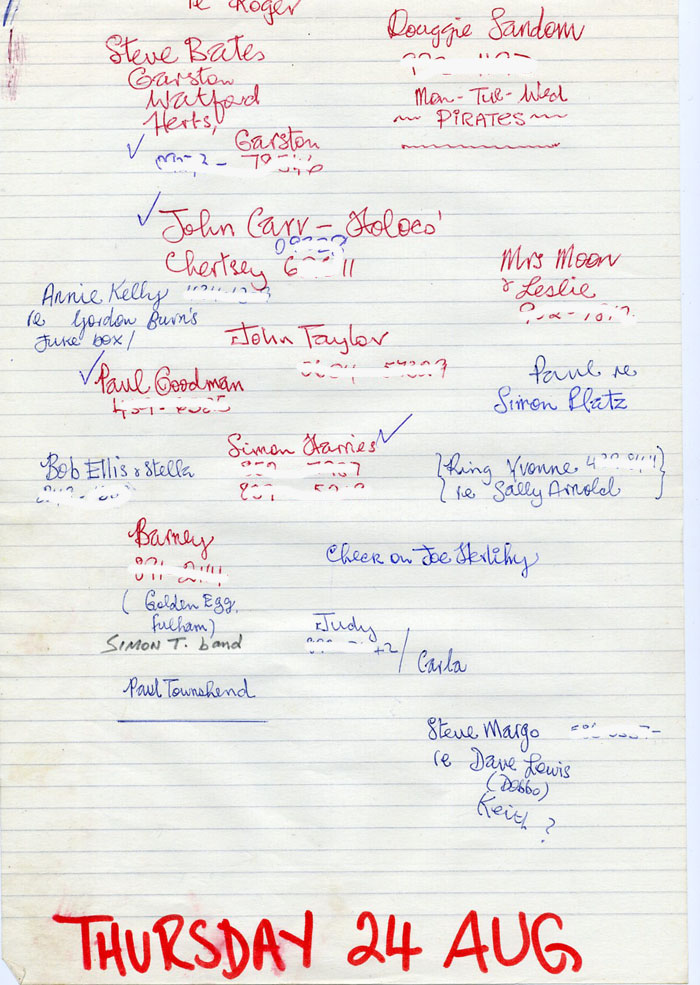 re Roger
Steve Bates
Garston
Watford
Herts,
Garston
Douggie Sandom
Mon-Tue-Wed
~ PIRATES ~
John Carr - Holoco'
Chertsey
Mrs Moon
& Leslie
Annie Kelly
re Gordon Burn's
Juke box/
John Taylor
Paul Goodman
Paul re
Simon Platz
Simon Harries
Bob Ellis & Stella
{Ring Yvonne
re Sally Arnold}
Barney
(Golden Egg,
Fulham)
SIMON T. band
Check on Joe Herlihy
Judy
+2/
Carla
Paul Townshend
Steve Margo
re Dave Lewis
(Dobbo)
Keith ?
THURSDAY 24 AUG